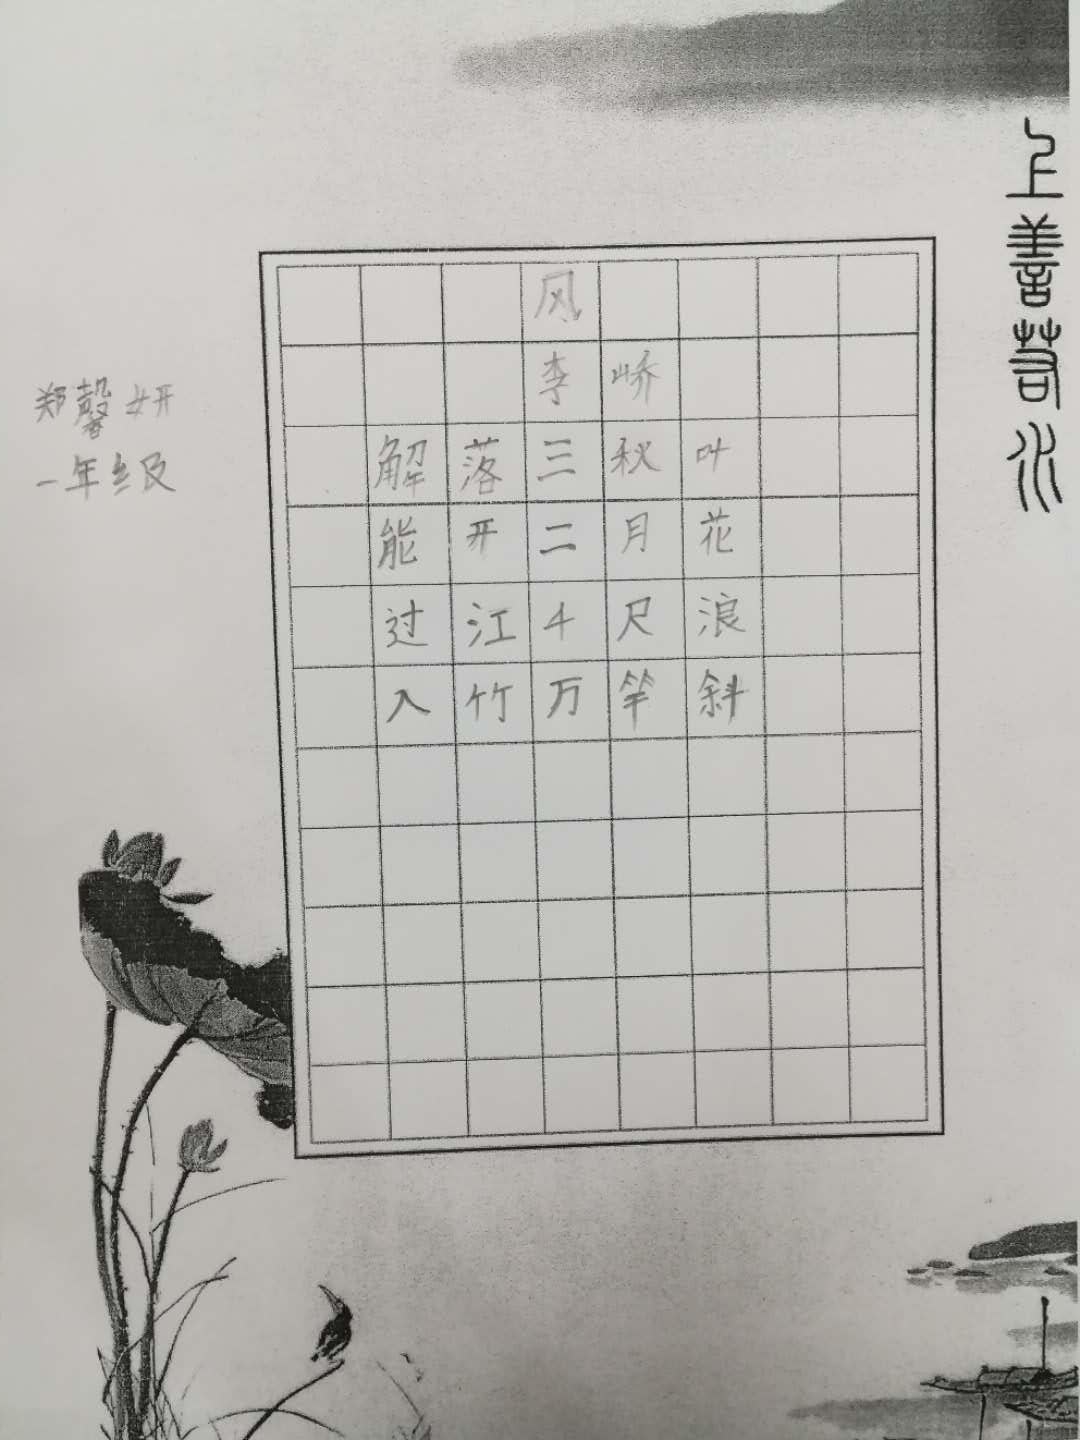 上善若水
风
李峤
解落三秋叶
能开二月花
过江千尺浪
入竹万竿斜
郑馨妍
一年级